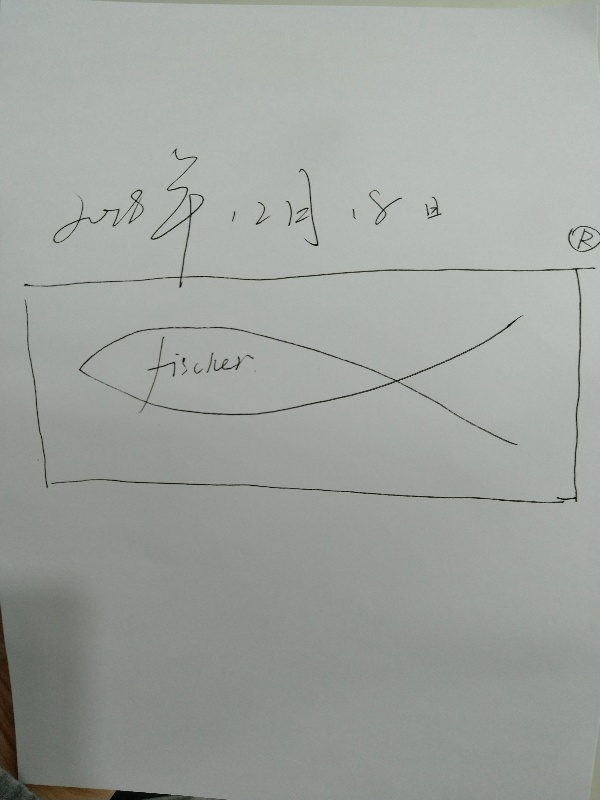 2018年12月18日
®
fischer